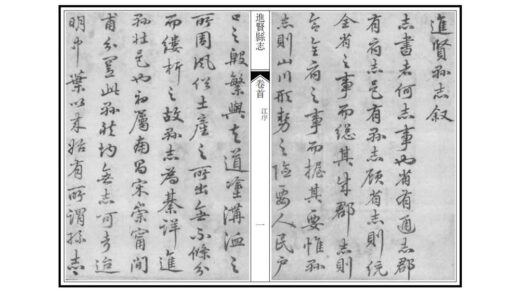 進賢縣志叙
志書者何志事也省有通志郡
有府志邑有縣志顧省志則統
全省之事而總其成郡志則
合全府之事而握其要惟縣
志則山川形勢之險要人民户
進賢縣志
卷首
江序
一
口之殷繁與夫道塗溝洫之
所周風俗土產之所出無不條分
而縷析之故縣志為綦詳進
賢壯邑也初屬南昌宋崇甯間
甫分置此縣然均無志可考迨
明中葉以來始有所謂縣志